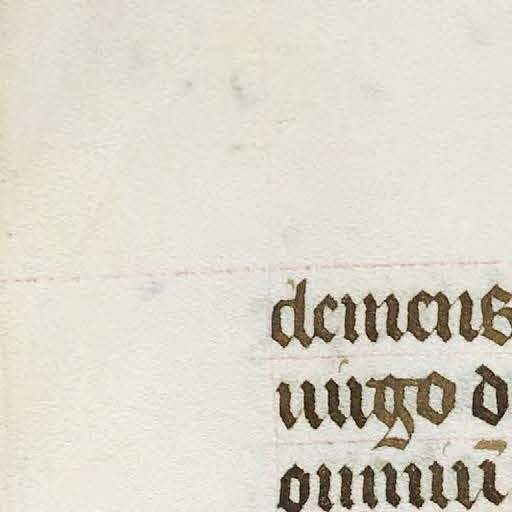 clemens
uirgo d
omniū